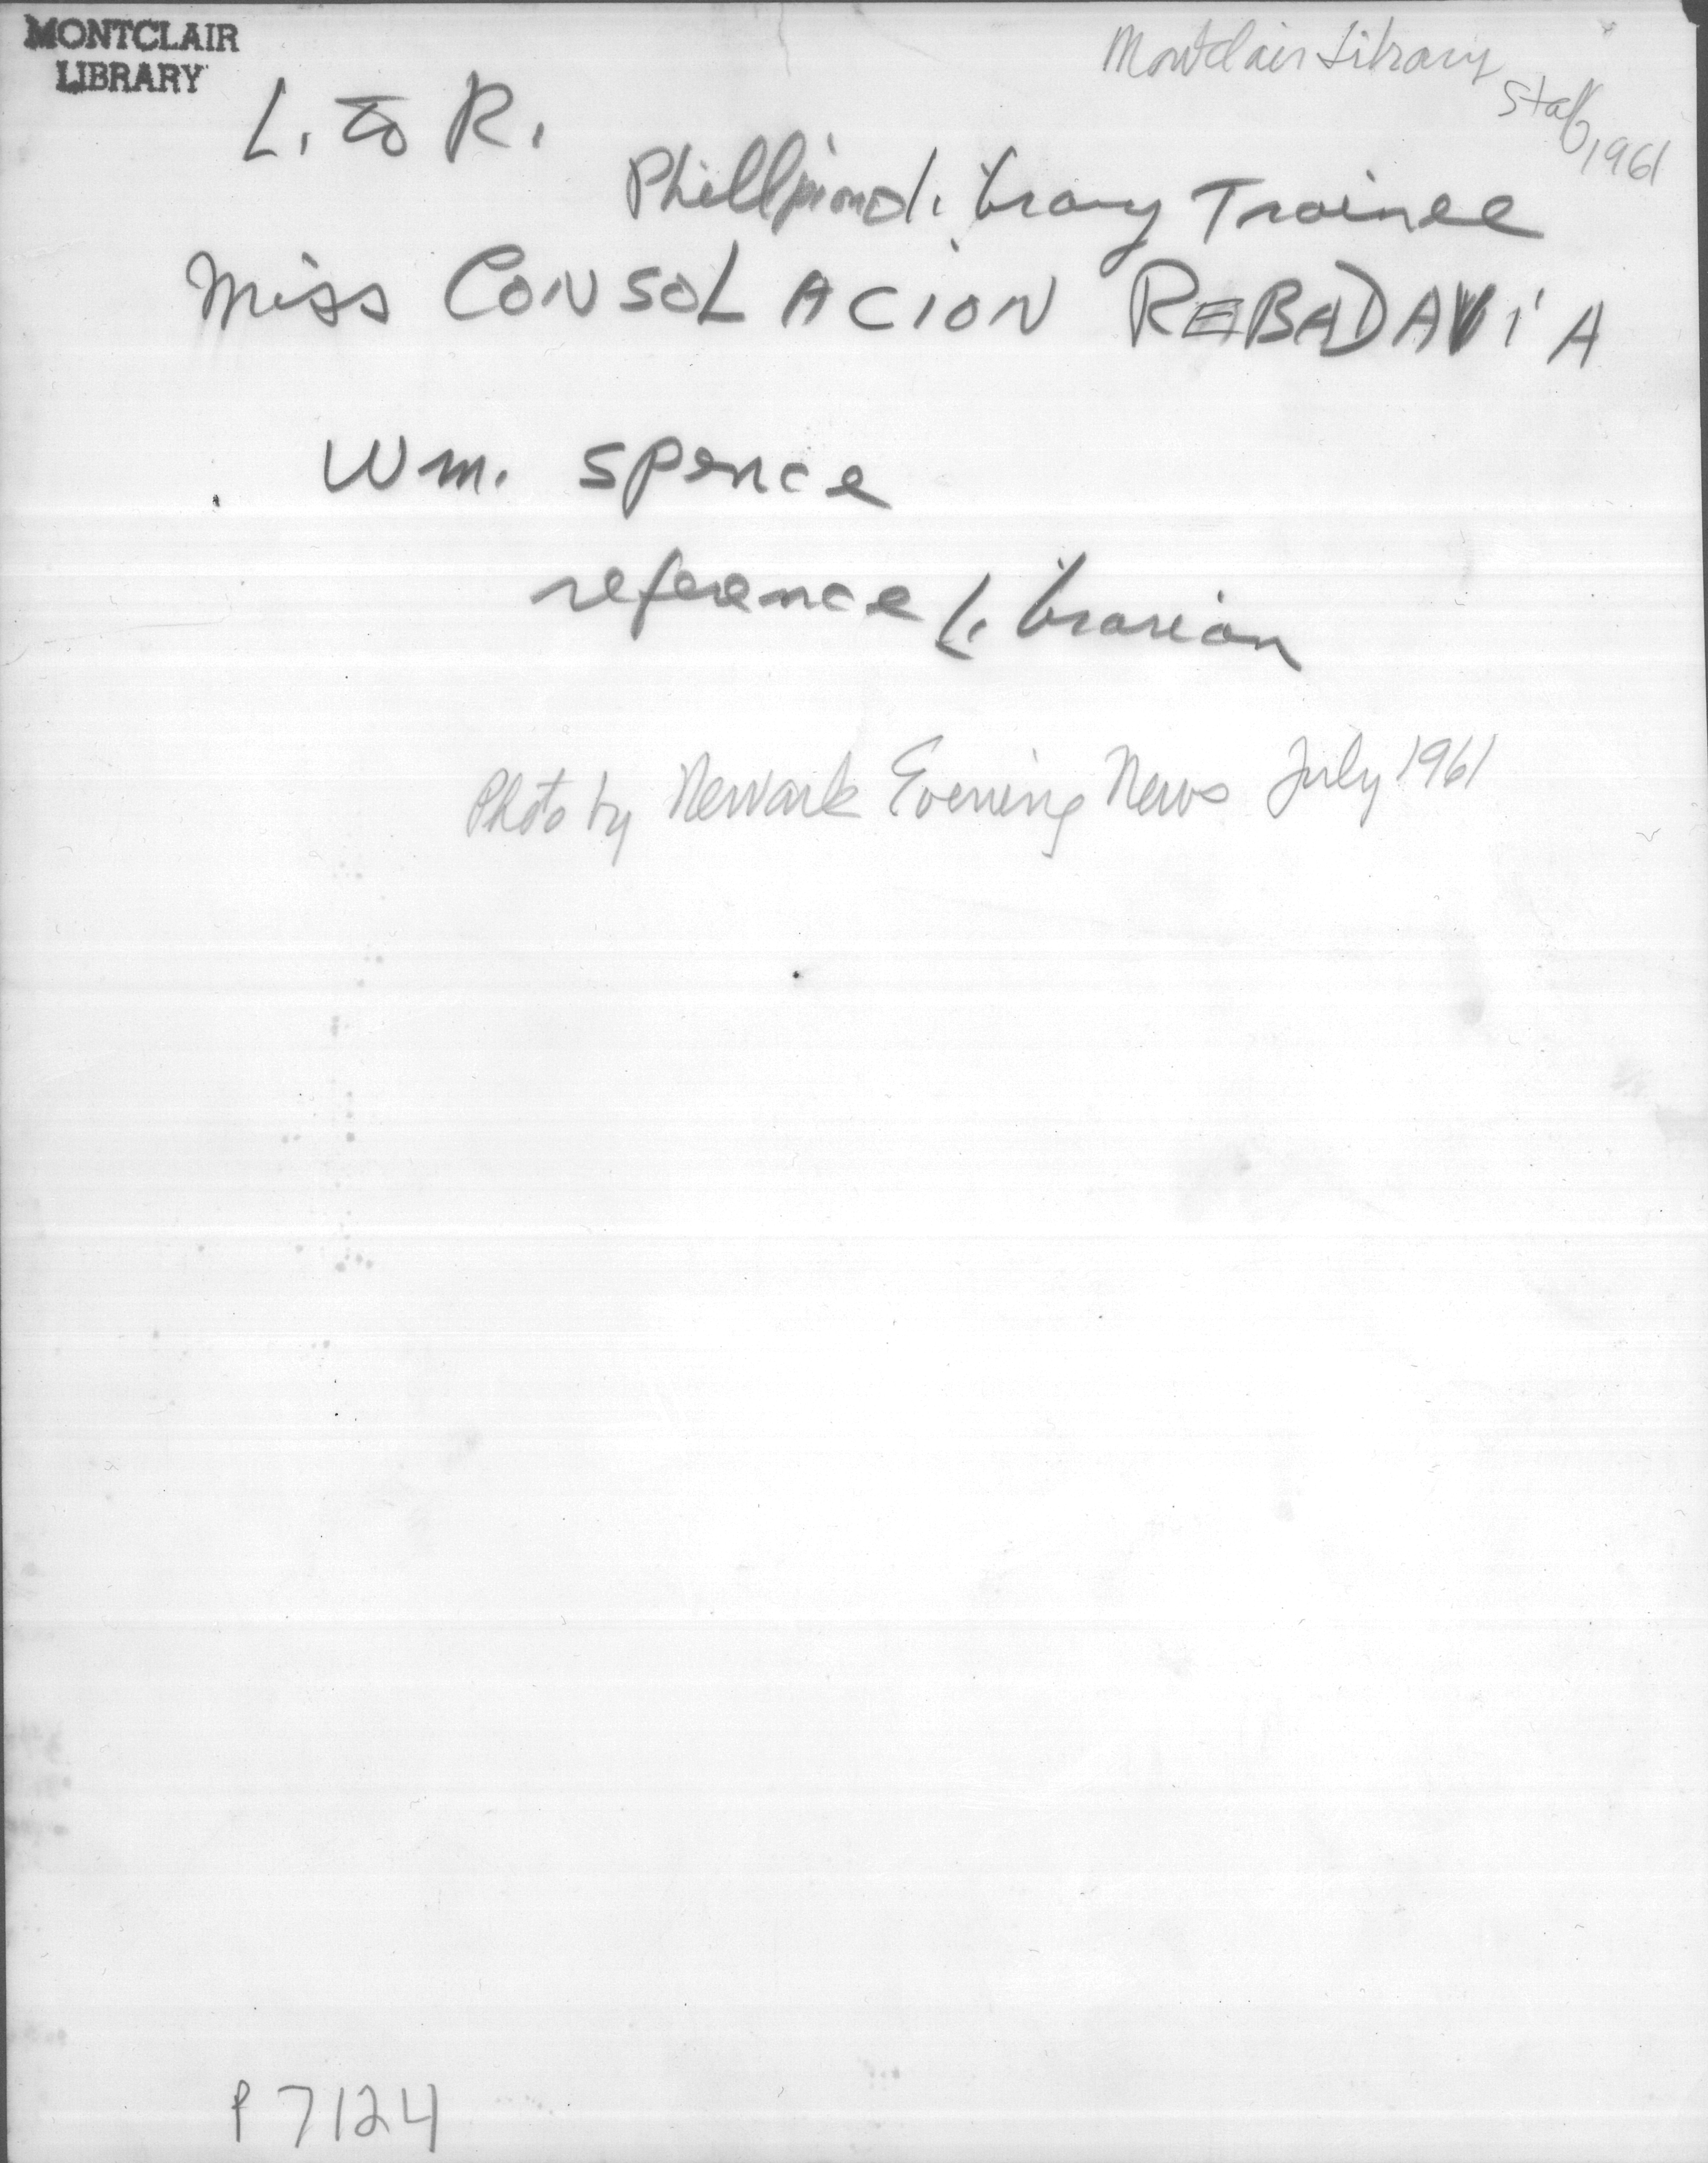 MONTCLAIR
LIBRARY
Montclair Library
Staff 1961
L. to R.
Library Trainee
Miss CONSOLACION REBADAVIA
Wm. Spence
reference Librarian
Photo by Newark Evening News July 1961
P 7124